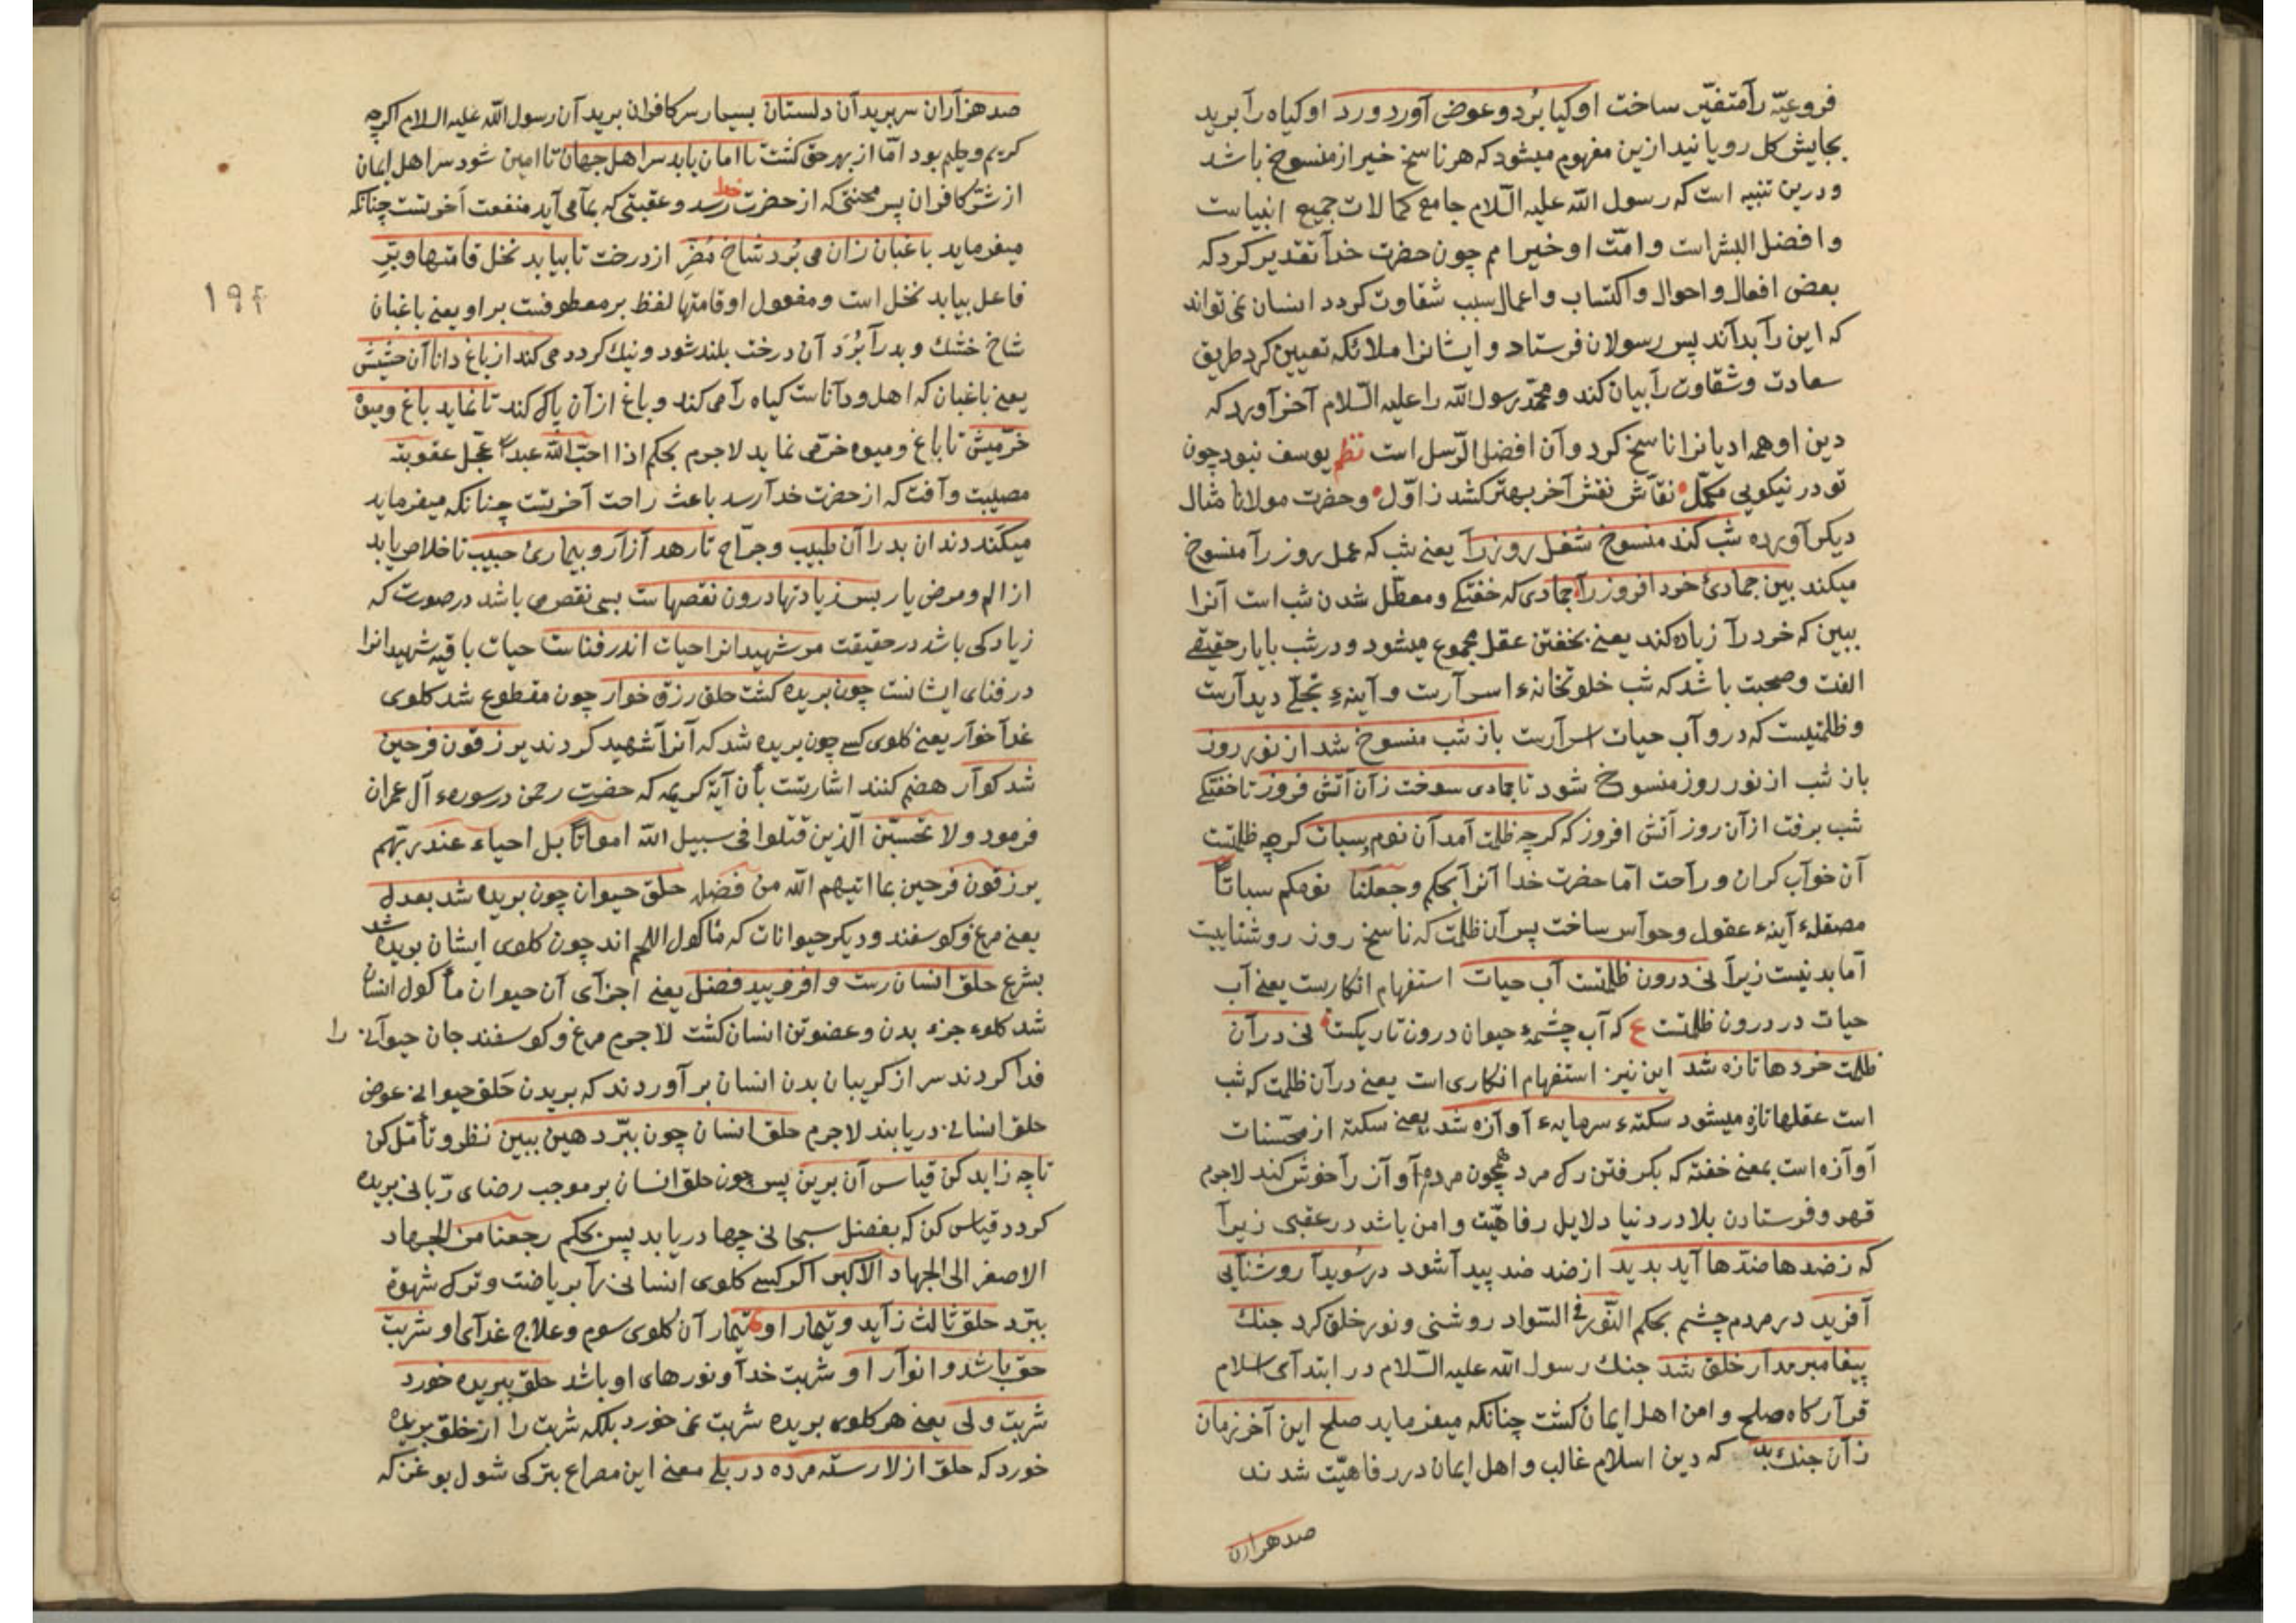 فروعیّه رآ متغیّر ساخت او کیا بُرد و عوض آورد ورد او کیاه رآ برید
بجایش کل رویانید ازین مفهوم میشود که هر ناسخ خیر از منسوخ باشد
و درین تنبیه است که رسول الله علیه السّلام جامع کمالات جمیع انبیاست
و افضل البشر است و امّت او خیر امم چون حضرت خدآ تقدیر کرد که
بعض افعال و احوال و اکتساب و اعمال سبب شقاوت کردد انسان نمی تواند
که این رآ بدآند پس رسولان فرستاد و ایشانرا ملائکه تعیین کرد طریق
سعادت و شقاوت رآ بیان کند و محمّد رسول الله را علیه السّلام آخر آورد که
دین او همه ادیانرا ناسخ کرد و آن افضل الرّسل است نظم یوسف نبود چون
تو در نیکویی مکمّل نقاش نقش آخر بهتر کشد ز اوّل و حضرت مولانا مثال
دیکر آورده شب کند منسوخ شغل روز رآ یعنی شب که عمل روز رآ منسوخ
میکند بین جمادئ خرد افروز رآ جمادی که خفتکی و معطّل شدن شب است آنرا
ببین که خرد رآ زیاده کند یعنی بخفتن عقل مجموع میشود و در شب با یار حقیقی
الفت و صحبت باشد که شب خلوتخانهء اسرآرست و آینهء تجلّی دیدآرست
و ظلمتیست که درو آب حیات اسرآرست باز شب منسوخ شد از نور روز
باز شب از نور روز منسوخ شود تا جمادی سوخت زان آتش فروز تا خفتکی
شب برفت از آن روز آتش افروز که کرچه ظلمت آمد آن نوم و سبات کرچه ظلمتست
آن خوآب کران و رآحت امّا حضرت خدآ آنرآ بحکم و جعلنا نومکم سباتاً
مصقلهء آینهء عقول و حوآس ساخت پس آن ظلمت که ناسخ روز روشناییست
امّا بد نیست زیرآ نی درون ظلمتست آب حیات استفهام انکاریست یعنی آب
حیات در درون ظلمتست ع که آب چشمهء حیوان درون تاریکیست نی در آن
ظلمت خردها تازه شد این نیز استفهام انکاری است یعنی در آن ظلمت که شب
است عقلها تازه میشود سکتهء سرمایهء آوآزه شد یعنی سکتهء از محسّنات
آوآزه است بمعنی خفته که بکرفتن رک مرد همچون مرده آوآز رآ خوش کند لاجرم
قهر و فرستادن بلا در دنیا دلایل رفاهیّت و امن باشد در عقبی زیرآ
که ز ضدها ضدّها آید بدید از ضد ضد پیدآ شود در سُویدآ روشنآیی
آفرید در مردم چشم بحکم النّور فی السّواد روشنی و نور خلق کرد جنک
پیغامبر مدآر خلق شد جنک رسول الله علیه السّلام در ابتدآی اسلام
قرآرکاه صلح و امن اهل ایمان کشت چنانکه میفرماید صلح این آخر زمان
زآن جنک بد که دین اسلام غالب و اهل ایمان در رفاهیّت شدند
صد هزاران
صد هزآران سر برید آن دلستان بسیار سر کافران برید آن رسول الله علیه السلام اکرچه
کریم و حلیم بود امّا از بهر حق کشت تا امان یابد سر اهل جهان تا امین شود سر اهل ایمان
از شرّ کافران پس محنتی که از حضرت خدا رسد و عقبتی که بما می آید منفعت آخرتست چنانکه
میفرماید باغبان زان می بُرد شاخ مُضِر از درخت تا بیابد نخل قامتها و بَرّ
فاعل بیابد نخل است و مفعول او قامتها لفظ بر معطوفست بر او یعنی باغبان
۱۹۴
شاخ خشک و بد رآ بُرَد آن درخت بلند شود و نیک کردد می کند از باغ دانا آن حشیش
یعنی باغبان که اهل و دآناست کیاه رآ می کند و باغ از آن پاک کند تا نماید باغ و میوه
خرّمیش تا باغ و میوه خرّمی نماید لاجرم بحکم اذا احبّ الله عبداً عجّل عقوبته
مصیبت و آفت که از حضرت خدآ رسد باعث راحت آخرتست چنانکه میفرماید
میکَند دندان بد را آن طبیب و جرّاح تا رهد آزآر و بیمارئ حبیب تا خلاص یابد
از الم و مرض یار پس زیادتها درون نقصهاست بسی نقص می باشد در صورت که
زیادکی باشد در حقیقت مر شهیدانرا حیات اندر فناست حیات باقیه شهیدانرا
در فنای ایشانست چون بریده کشت حلق رزق خوار چون مقطوع شد کلوی
غدآ خوآر یعنی کلوی کسی چون بریده شد که آنرآ شهید کردند یرزقون فرحین
شد کوآر هضم کنند اشارتست بأن آیة کریمه که حضرت رحمن در سورهء آل عمران
فرمود ولا تحسبّن الّذین قتلوا فی سبیل الله امواتاً بل احیاء عند ربّهم
یرزقون فرحین بما اتیهم الله من فضله حلق حیوان چون بریده شد بعدل
یعنی مرغ و کوسفند و دیکر حیوانات که مأکول اللحم اند چون کلوی ایشان بریده شد
بشرع حلق انسان رست و افزویید فضل یعنی اجزآی آن حیوان مأکول انسان
شد کلوء جزء بدن و عضو تن انسان کشت لاجرم مرغ و کوسفند جان حیوآنی را
فدا کردند سر از کریبان بدن انسان بر آوردند که بریدن حَلق حیوانی عوض
حلق انسانی دریابند لاجرم حلق انسان چون ببرّد هین ببین نظر و تأمّل کن
تا چه زاید کن قیاس آن برین پس چون حلق انسان بر موجب رضای ربّانی بریده
کردد قیاس کن که بفضل سبحانی چها دریابد پس بحکم رجعنا من الجهاد
الاصغر الی الجهاد الاکبر اکر کسی کلوی انسانی رآ بریاضت و ترک شهوة
ببرّد حلق ثالث زآید و تیمار او تیمار آن کلوی سوم و علاج غدآی او شربت
حق باشد و انوآر او شربت خدآ و نورهای او باشد حلق ببریده خورد
شربت ولی یعنی هر کلوی بریده شربت نمی خورد بلکه شربت را از خلق بریده
خورد که حلق از لا رسته مرده در بلی معنی این مصراع بترکی شول بوغزکه